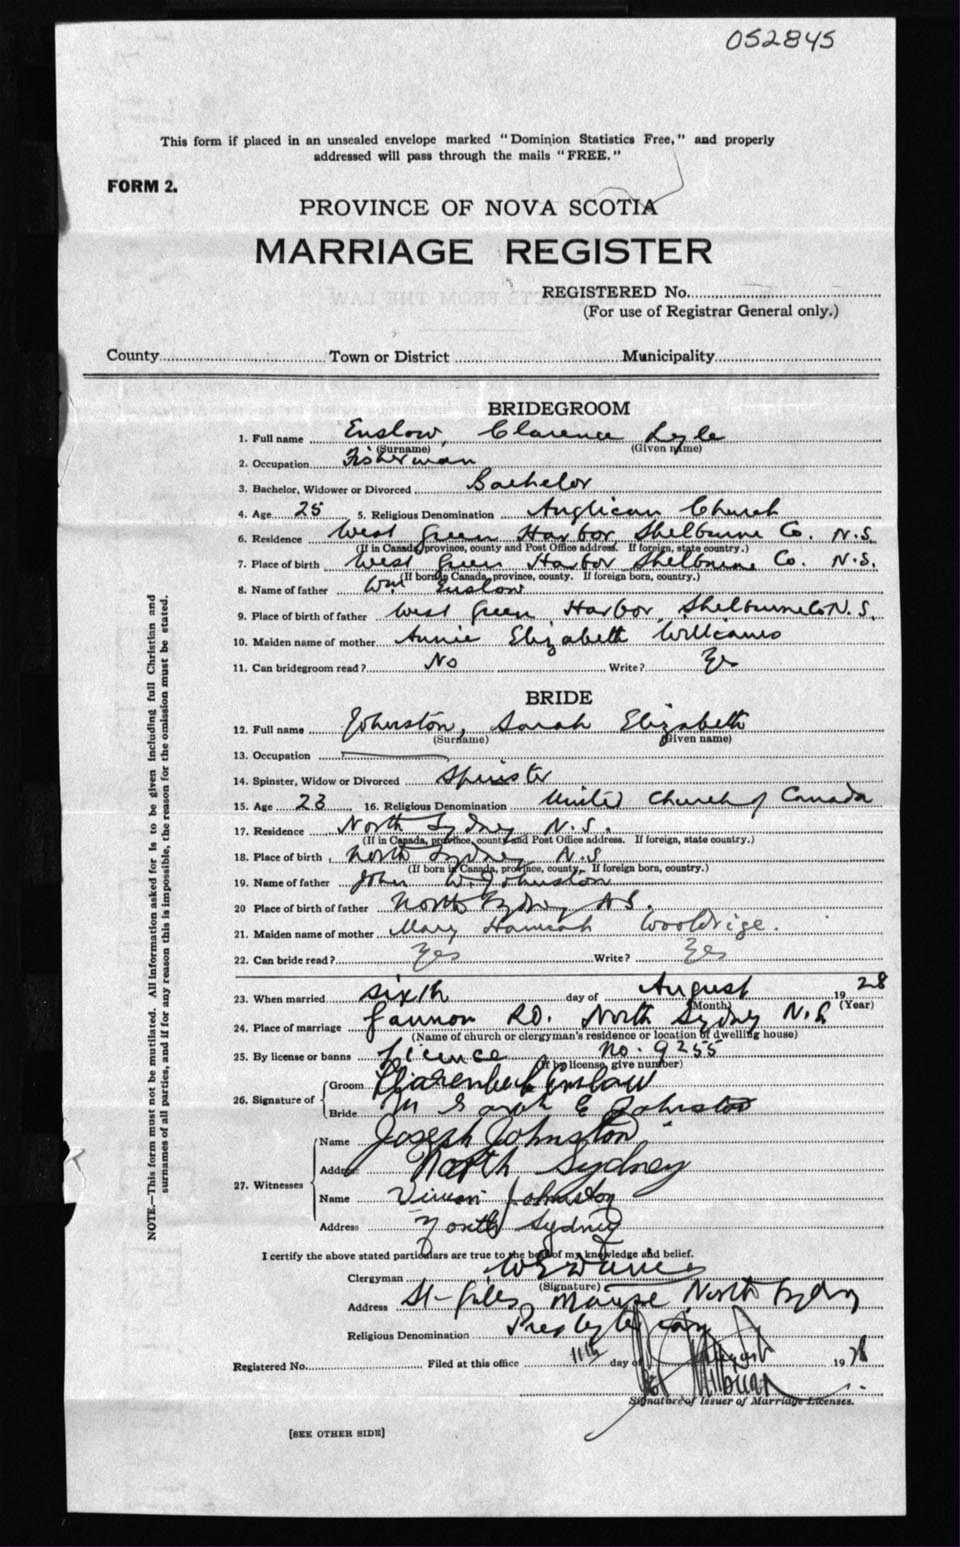 052845
This form if placed in an unsealed envelope marked "Dominion Statistics Free," and properly
addressed will pass through the mails "FREE."
FORM 2.
PROVINCE OF NOVA SCOTIA
MARRIAGE REGISTER
REGISTERED No.
(For use of Registrar General only.)
County Town or District Municipality
BRIDEGROOM
1. Full name Enslow, Clarence Lyle
(Surname) (Given name)
2. Occupation Fisherman
3. Bachelor, Widower or Divorced Bachelor
4. Age 25 5. Religious Denomination Anglican Church
6. Residence West Green Harbor Shelburne Co. N.S.
(If in Canada, province, county and Post Office address. If foreign, state country.)
7. Place of birth West Green Harbor Shelburne Co. N.S.
(If born in Canada, province, county. If foreign born, country.)
8. Name of father Wm Enslow
9. Place of birth of father West Green Harbor Shelburne Co N.S.
10. Maiden name of mother Annie Elizabeth Williams
11. Can bridegroom read? No Write? Yes
BRIDE
12. Full name Johnston, Sarah Elizabeth
(Surname) (Given name)
13. Occupation
14. Spinster, Widow or Divorced Spinster
15. Age 23 16. Religious Denomination United Church of Canada
17. Residence North Sydney N.S.
(If in Canada, province, county and Post Office address. If foreign, state country.)
18. Place of birth North Sydney N.S
(If born in Canada, province, county. If foreign born, country.)
19. Name of father John W. Johnston
20 Place of birth of father North Sydney N.S.
21. Maiden name of mother Mary Hannah Wooldrige.
22. Can bride read? Yes Write? Yes
23. When married sixth day of August 1928
(Month) (Year)
24. Place of marriage Gannon RD. North Sydney N.S
(Name of church or clergyman's residence or location of dwelling house)
25. By license or banns Licence No. 9255
(If by license, give number)
26. Signature of Groom Clarence Enslow
Bride Sarah E Johnston
27. Witnesses Name Joseph Johnston
Address North Sydney
Name Johnston
Address North Sydney
I certify the above stated particulars are true to the best of my knowledge and belief.
Clergyman
(Signature)
Address St Giles Manse North Sydney
Religious Denomination Presbyterian
Registered No. Filed at this office 11th day of August 1928
Signature of Issuer of Marriage Licenses.
[SEE OTHER SIDE]
NOTE.—This form must not be mutilated. All information asked for is to be given including full Christian and
surnames of all parties, and if for any reason this is impossible, the reason for the omission must be stated.